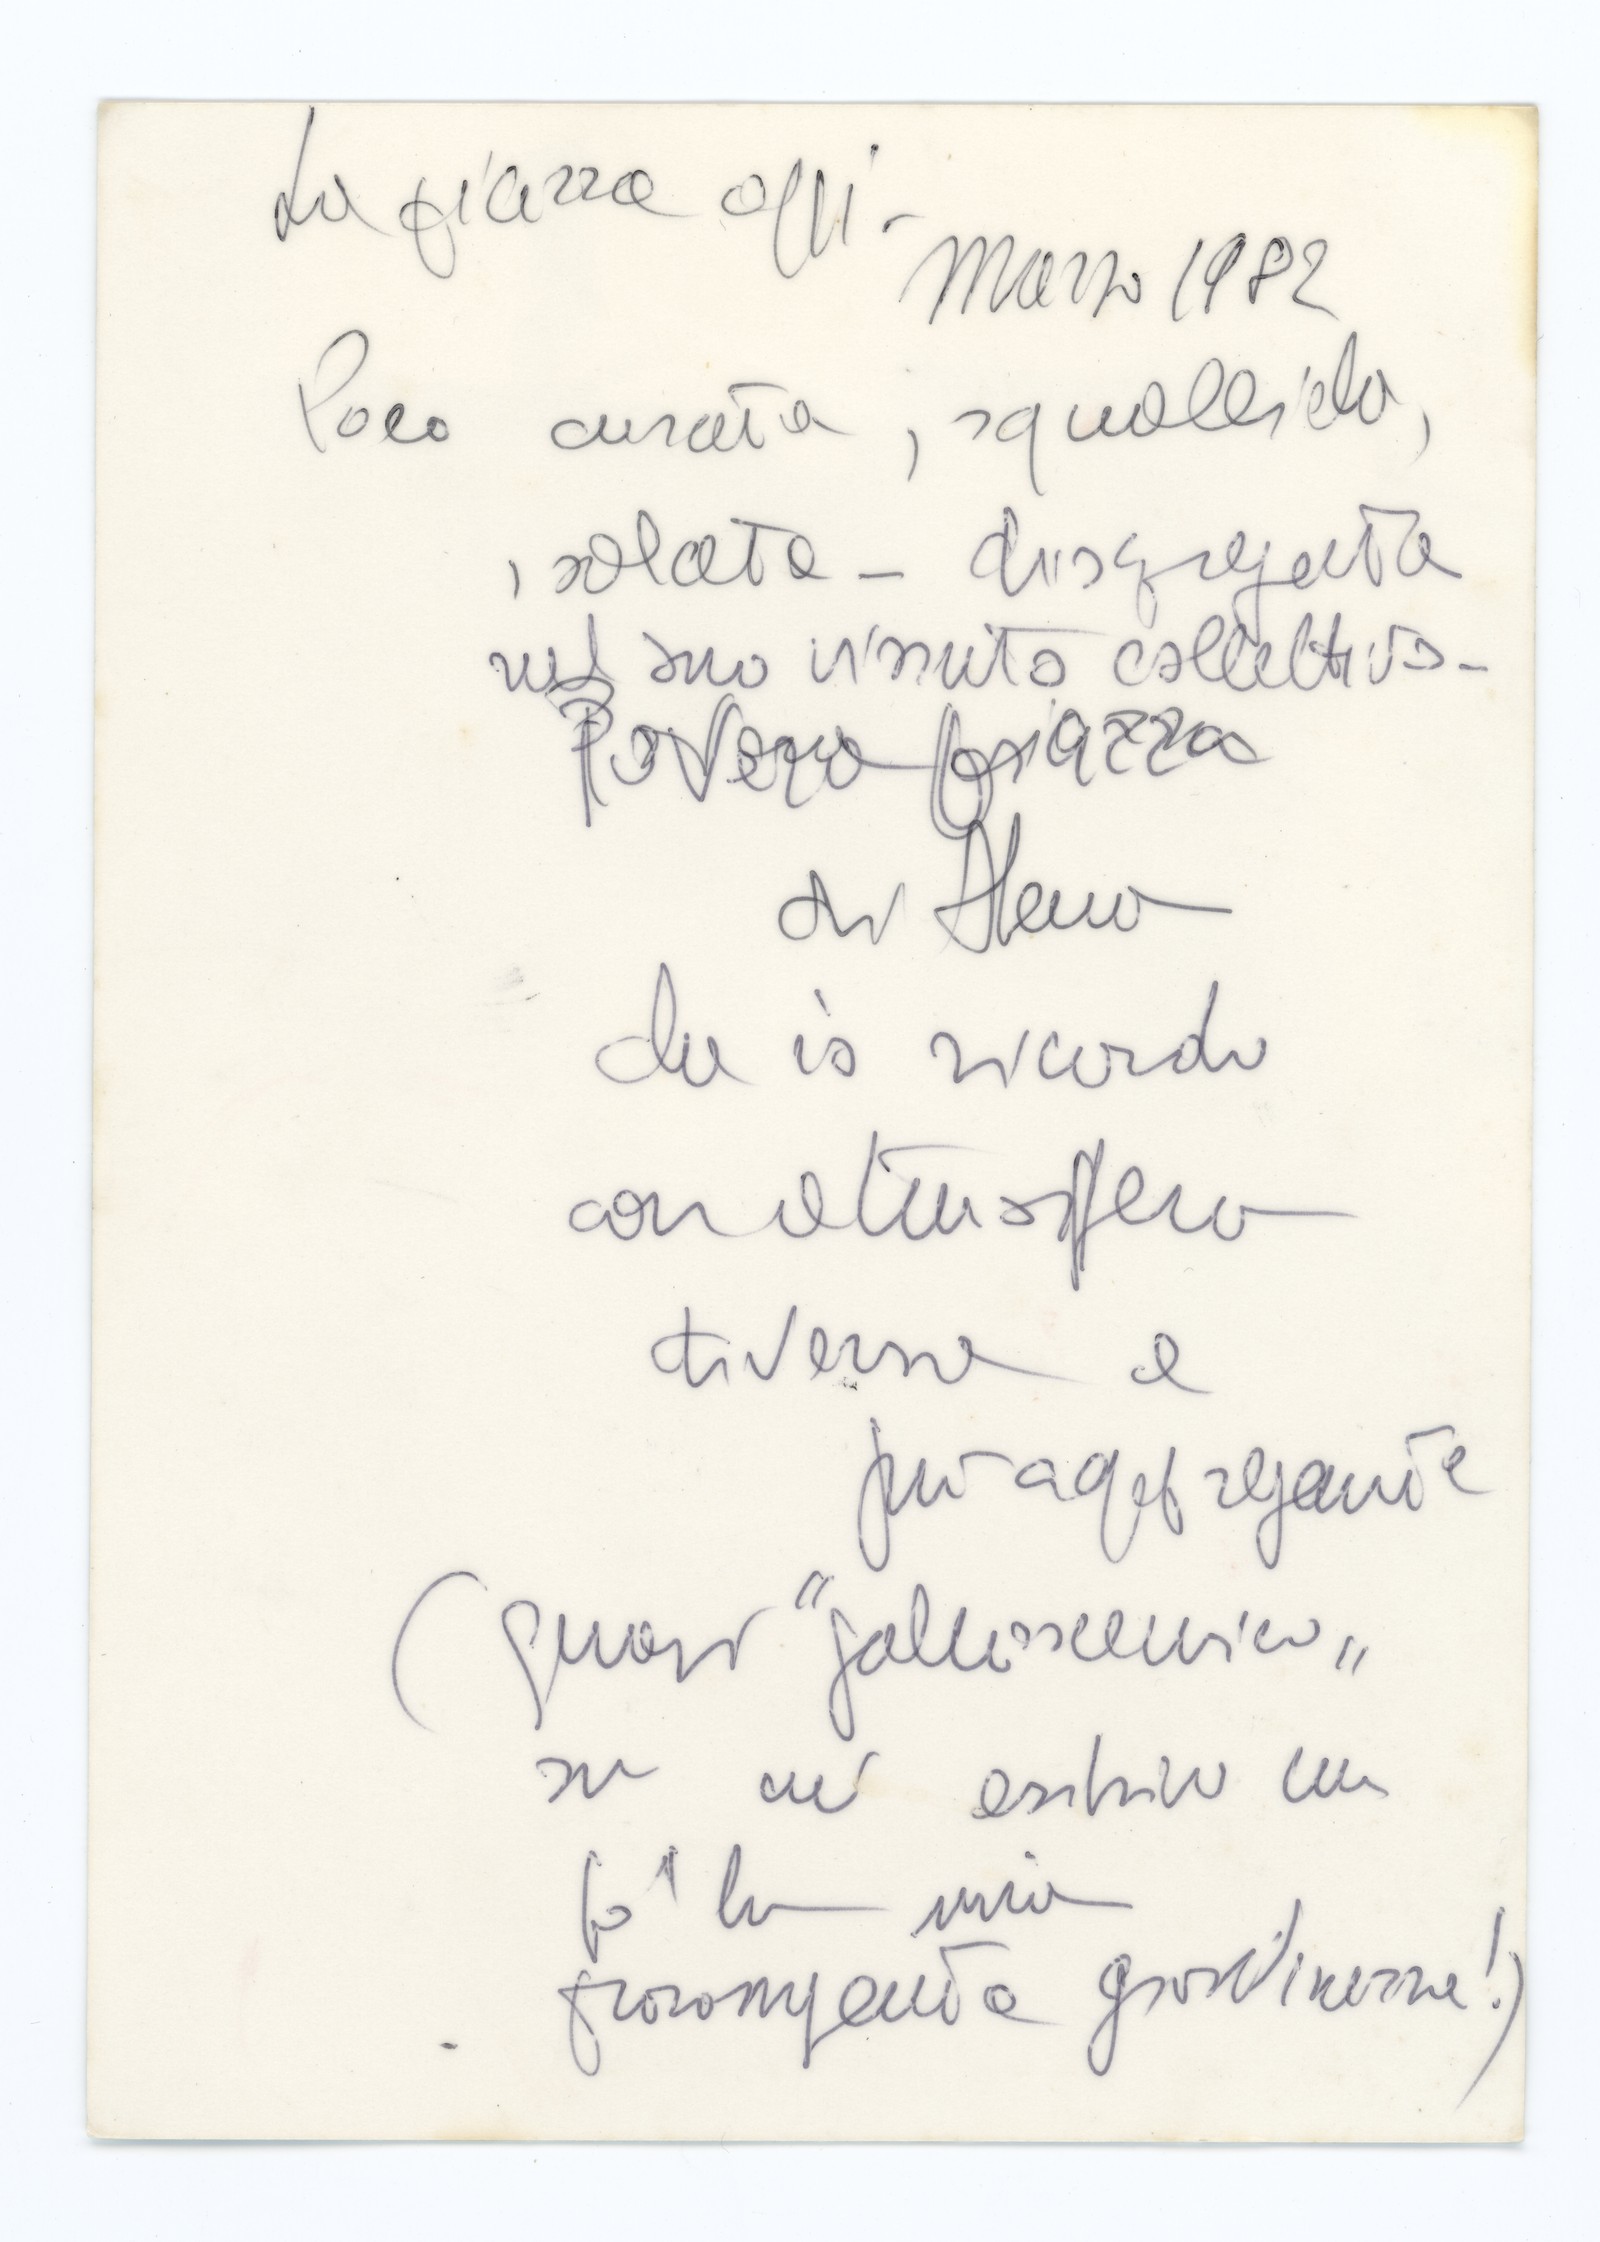 La piazza oggi -
Marzo 1982
Poco curata, squallida,
isolata - disgregata
nel suo vissuto collettivo -
Povera piazza
di
che io ricordo
con atmosfera
diversa e
più aggregante
(quasi "palcoscenico"
su cui esibivo un
po' la mia
prorompente giovinezza!)